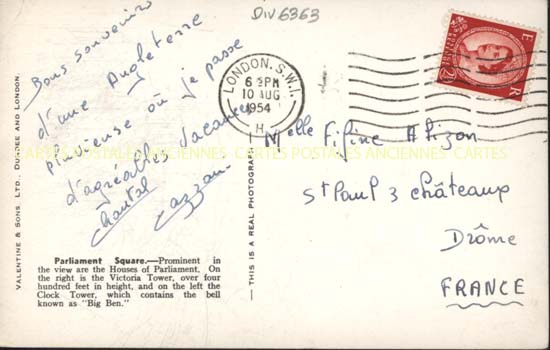 DIV6363
Bons souvenirs
d'une Angleterre
pluvieuse où je passe
d'agréables vacances
Chantal
LONDON. S.W.1.
6 PM
10 AUG
1954
H
E R
Melle
St Paul 3 châteaux
Drôme
FRANCE
CARTES POSTALES ANCIENNES CARTES POSTALES ANCIENNES CARTES
VALENTINE & SONS. LTD., DUNDEE AND LONDON.
— THIS IS A REAL PHOTOGRAPH
Parliament Square.—Prominent in
the view are the Houses of Parliament, On
the right is the Victoria Tower, over four
hundred feet in height, and on the left the
Clock Tower, which contains the bell
known as "Big Ben."